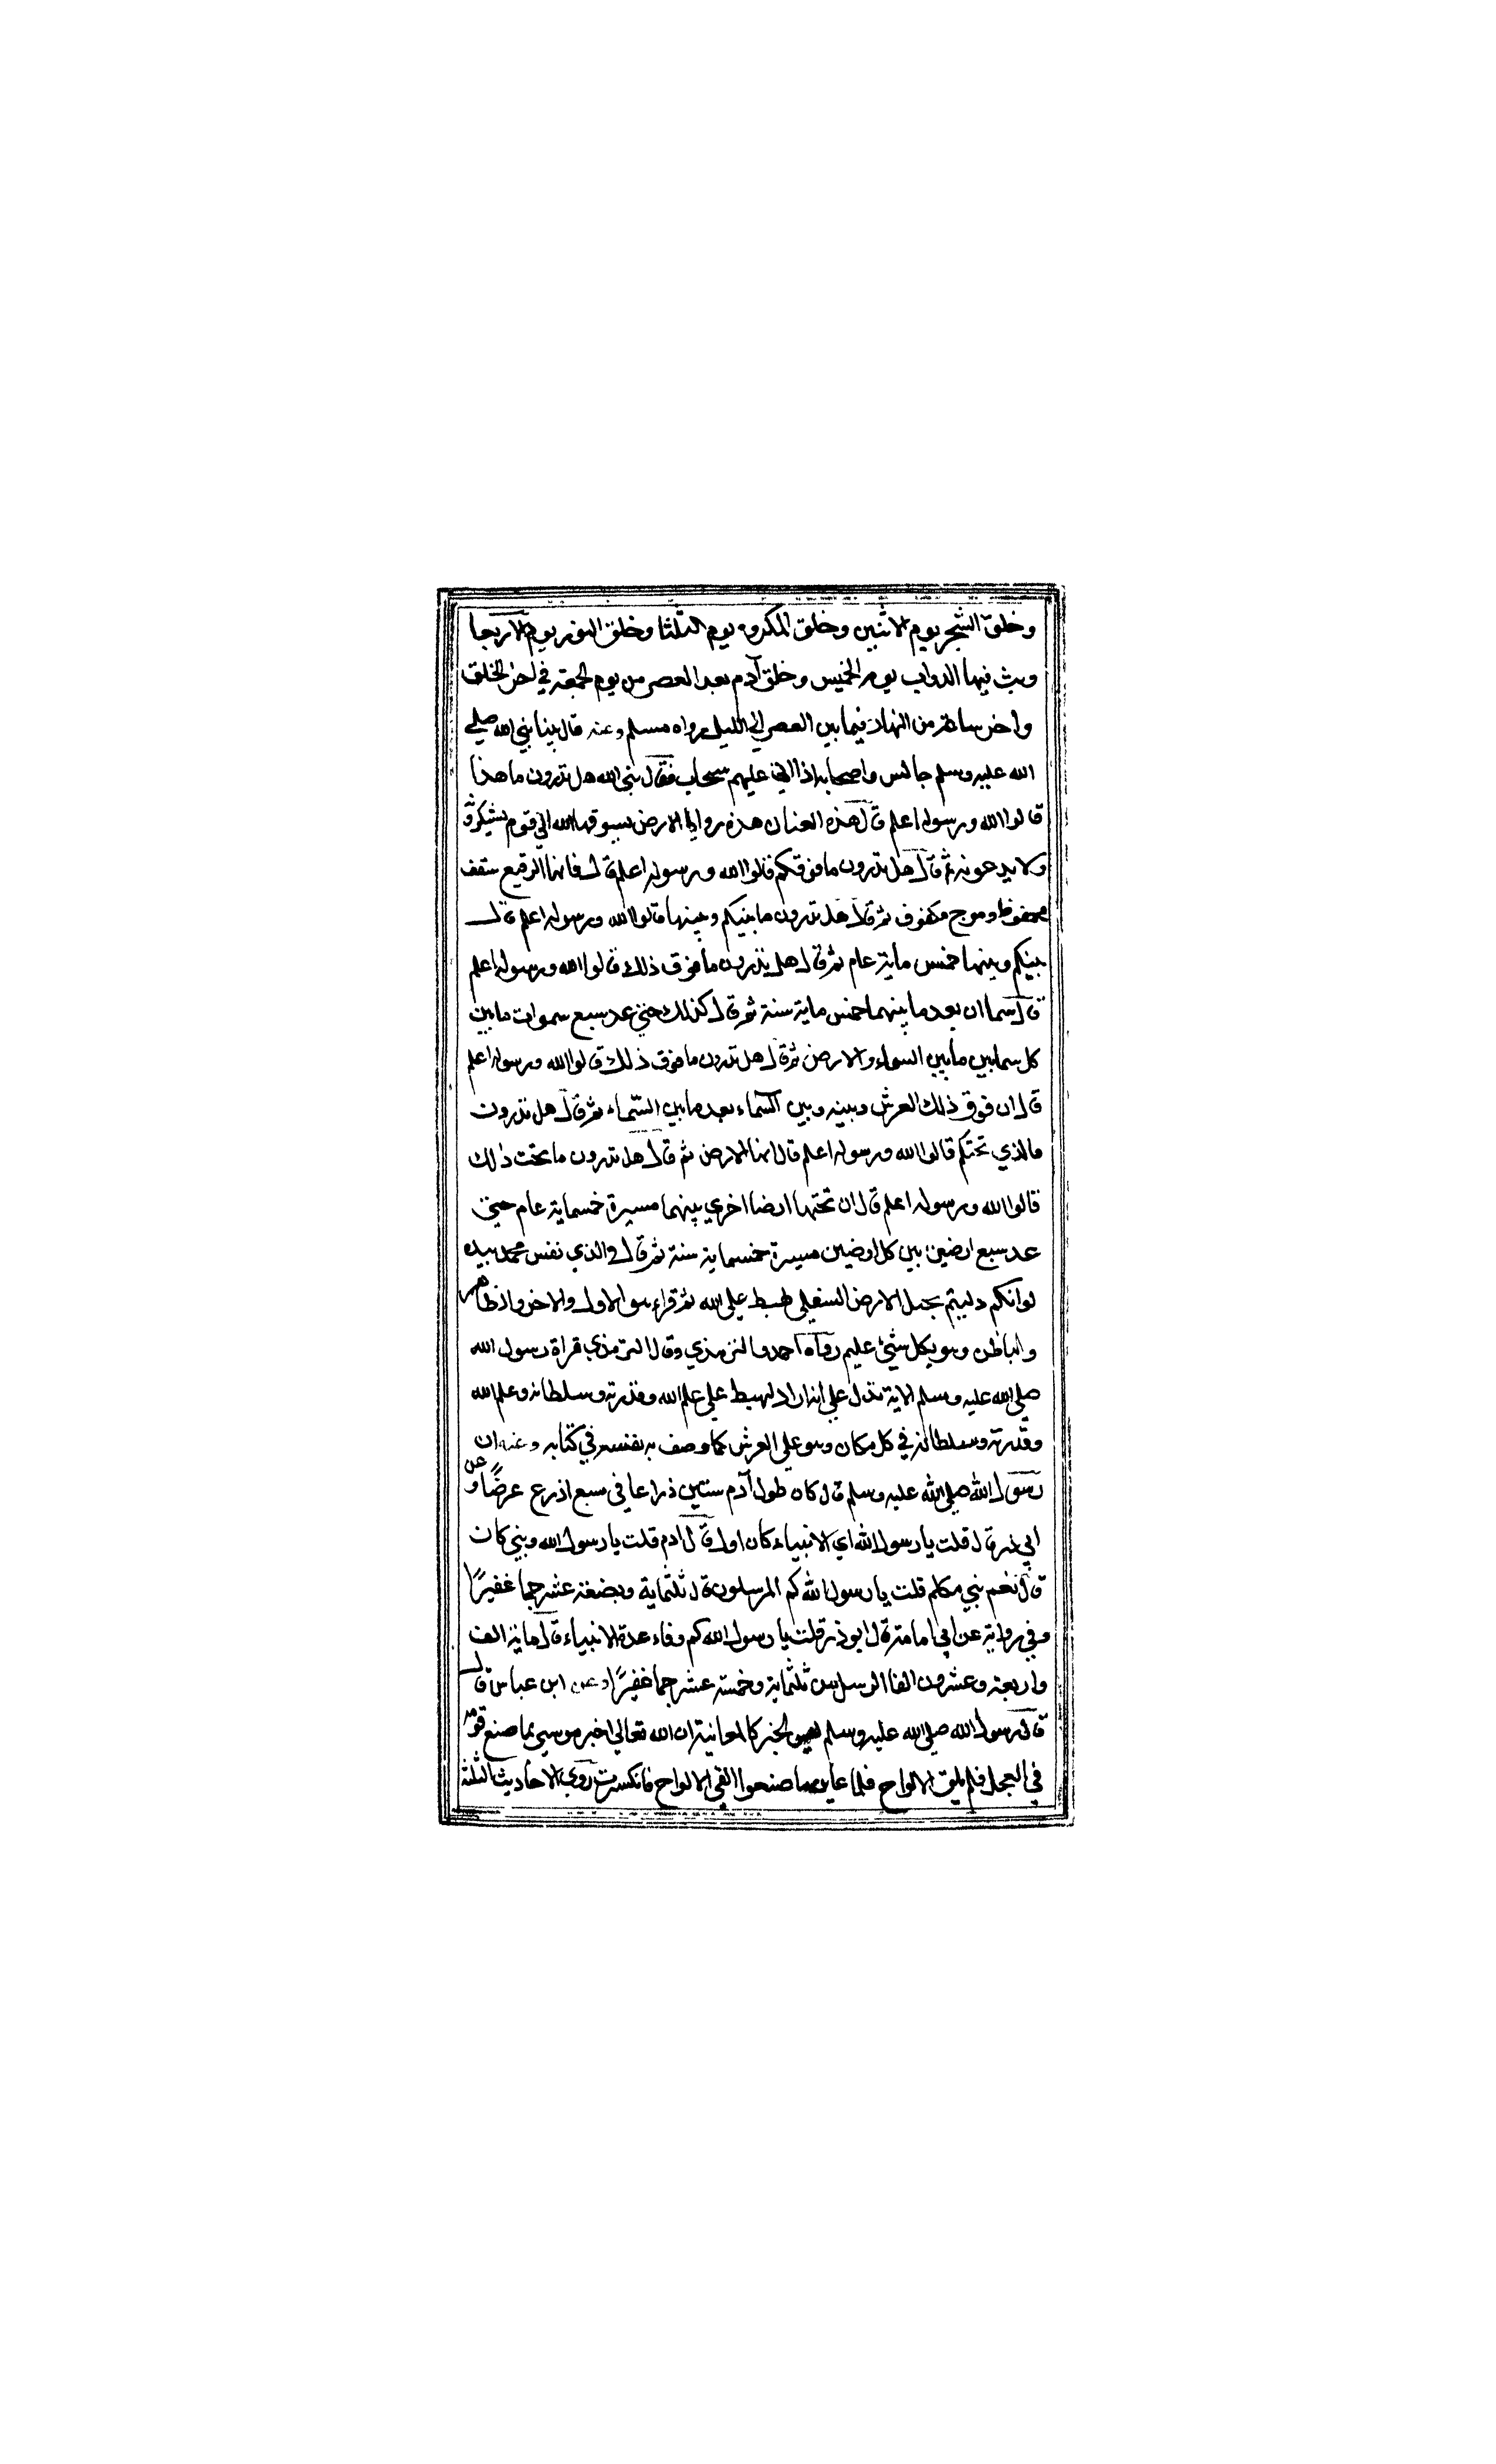 وخلق الشجر يوم الاثنين وخلق المكروه يوم الثلثا وخلق النور يوم الاربعا
وبث فيها الدواب يوم الخميس وخلق آدم بعد العصر من يوم الجمعة في اخر الخلق
واخر ساعة من النهار فيما بين العصر الي الليل رواه مسلم وعنه قال بينا نبي الله صلي
الله عليه وسلم جالس واصحابه اذا اتي عليهم سحاب فقال نبي الله هل تدرون ما هذا
قالوا الله ورسوله اعلم قال هذه العنان هذه روايا الارض يسوقها الله الي قوم لا يشكرونه
ولا يدعونه ثم قال هل تدرون ما فوقكم قالوا الله ورسوله اعلم قال فانها الرقيع سقف
محفوظ وموج مكفوف ثم قال هل تدرون ما بينكم وبينها قالوا الله ورسوله اعلم قال
بينكم وبينها خمس ماية عام ثم قال هل تدرون ما فوق ذلك قالوا الله ورسوله اعلم
قال سما ان بعد ما بينهما خمس ماية سنة ثم قال كذلك حتي عد سبع سموات ما بين
كل سمايين ما بين السماء والارض ثم قال هل تدرون ما فوق ذلك قالوا الله ورسوله اعلم
قال ان فوق ذلك العرش وبينه وبين السماء بعد ما بين السماء ثم قال هل تدرون
مالذي تحتكم قالوا الله ورسوله اعلم قال انها الارض ثم قال هل تدرون ما تحت ذلك
قالوا الله ورسوله اعلم قال ان تحتها ارضا اخري بينهما مسيرة خمسماية عام حتي
عد سبع ارضين بين كل ارضين مسيرة خمسماية سنة ثم قال والذي نفس محمد بيده
لو انكم دليتم بحبل الارض السفلي لهبط علي الله ثم قراء هو الاول والاخر والظاهر
والباطن وهو بكل شيئ عليم رواه احمد والترمذي وقال الترمذي قراة رسول الله
صلي الله عليه وسلم الاية تدل علي انه اراد لهبط علي علم الله وقدرته وسلطانه وعلم الله
وقدرته وسلطانه في كل مكان وهو علي العرش كما وصف به نفسه في كتابه وعنه ان
رسول الله صلي الله عليه وسلم قال كان طول آدم ستين ذراعا في سبع اذرع عرضًا وعن
ابي ذر قال قلت يا رسول الله اي الانبياء كان اول قال ادم قلت يا رسول الله ونبي كان
قال نعم نبي مكلم قلت يا رسول الله كم المرسلون قال ثلثماية وبضعة عشر جما غفيرًا
وفي رواية عن ابي امامة قال ابوذر قلت يا رسول الله كم وفاء عدة الانبياء قال ماية الف
واربعة وعشرون الفا الرسل من ثلثماية وخمسة عشر جما غفيرًا وعن ابن عباس قال
قال رسول الله صلي الله عليه وسلم ليس الخبر كالمعاينة ان الله تعالي اخبر موسي بما صنع قومه
في العجل فلم يلق الالواح فلما عاين ما صنعوا القي الالواح فانكسرت روي الاحاديث الثلثة